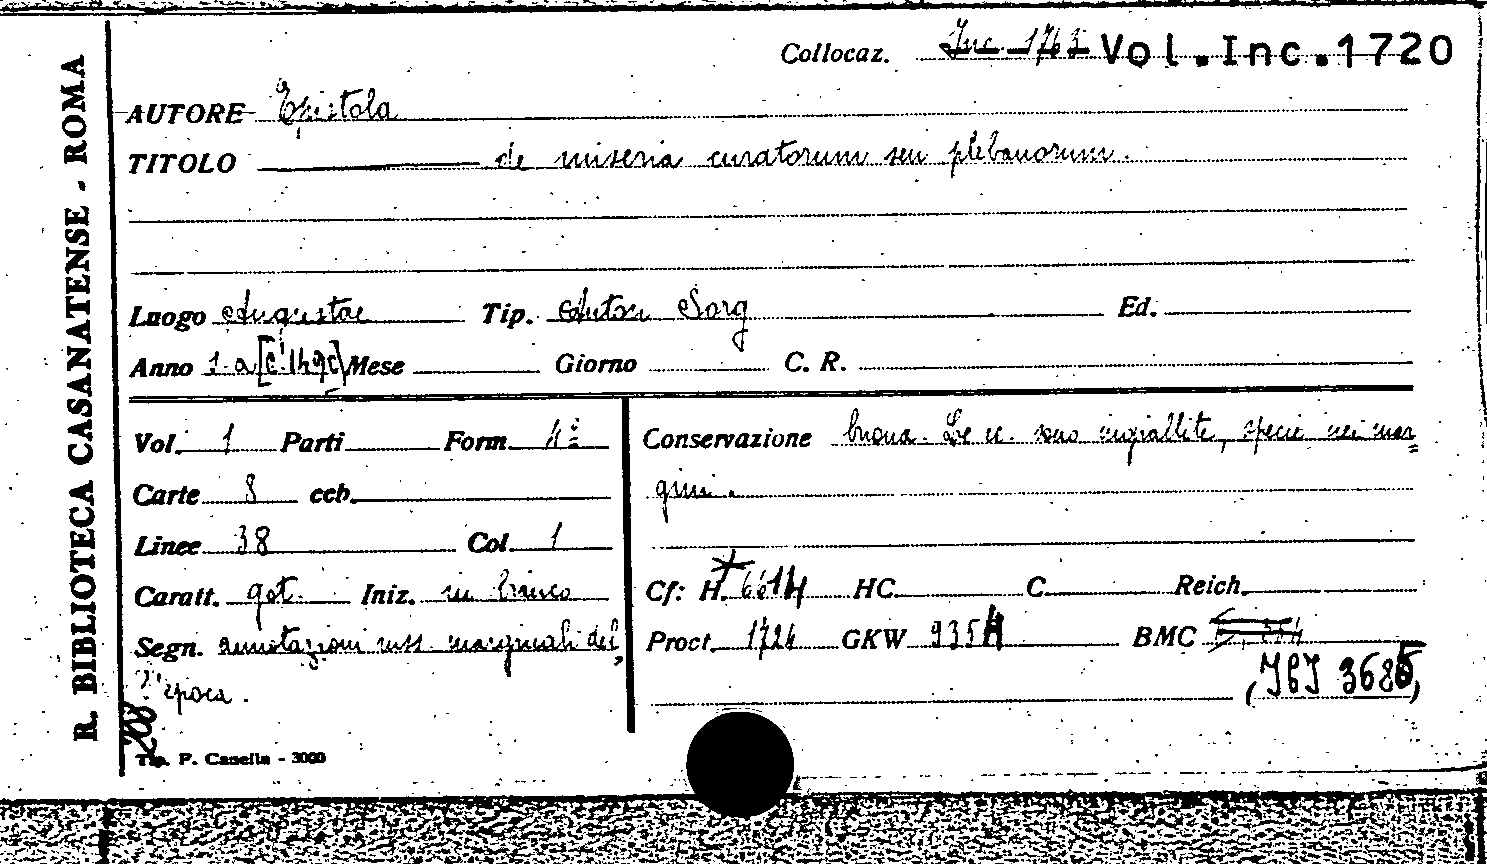 R. BIBLIOTECA CASANATENSE - ROMA
Collocaz. Inc. 1763 Vol.Inc.1720
AUTORE Epistola
TITOLO de miseria curatorum seu plebanorum.
Luogo Augustae Tip. Anton Sorg Ed.
Anno s. a [c. 1490] Mese Giorno C. R.
Vol. 1 Parti Form. 4°
Conservazione buona. Le cc. sono ingiallite, specie nei mar=
gini.
Carte 8 ccb.
Linee 38 Col. 1
Caratt. got. Iniz. in bianco
Segn. annotazioni mss. marginali del
l'epoca.
Cf: H. 6614 HC. C. Reich.
Proct. 1724 GKW 9354 BMC
(IGI 3685)
208
Tip. F. Canella - 3000